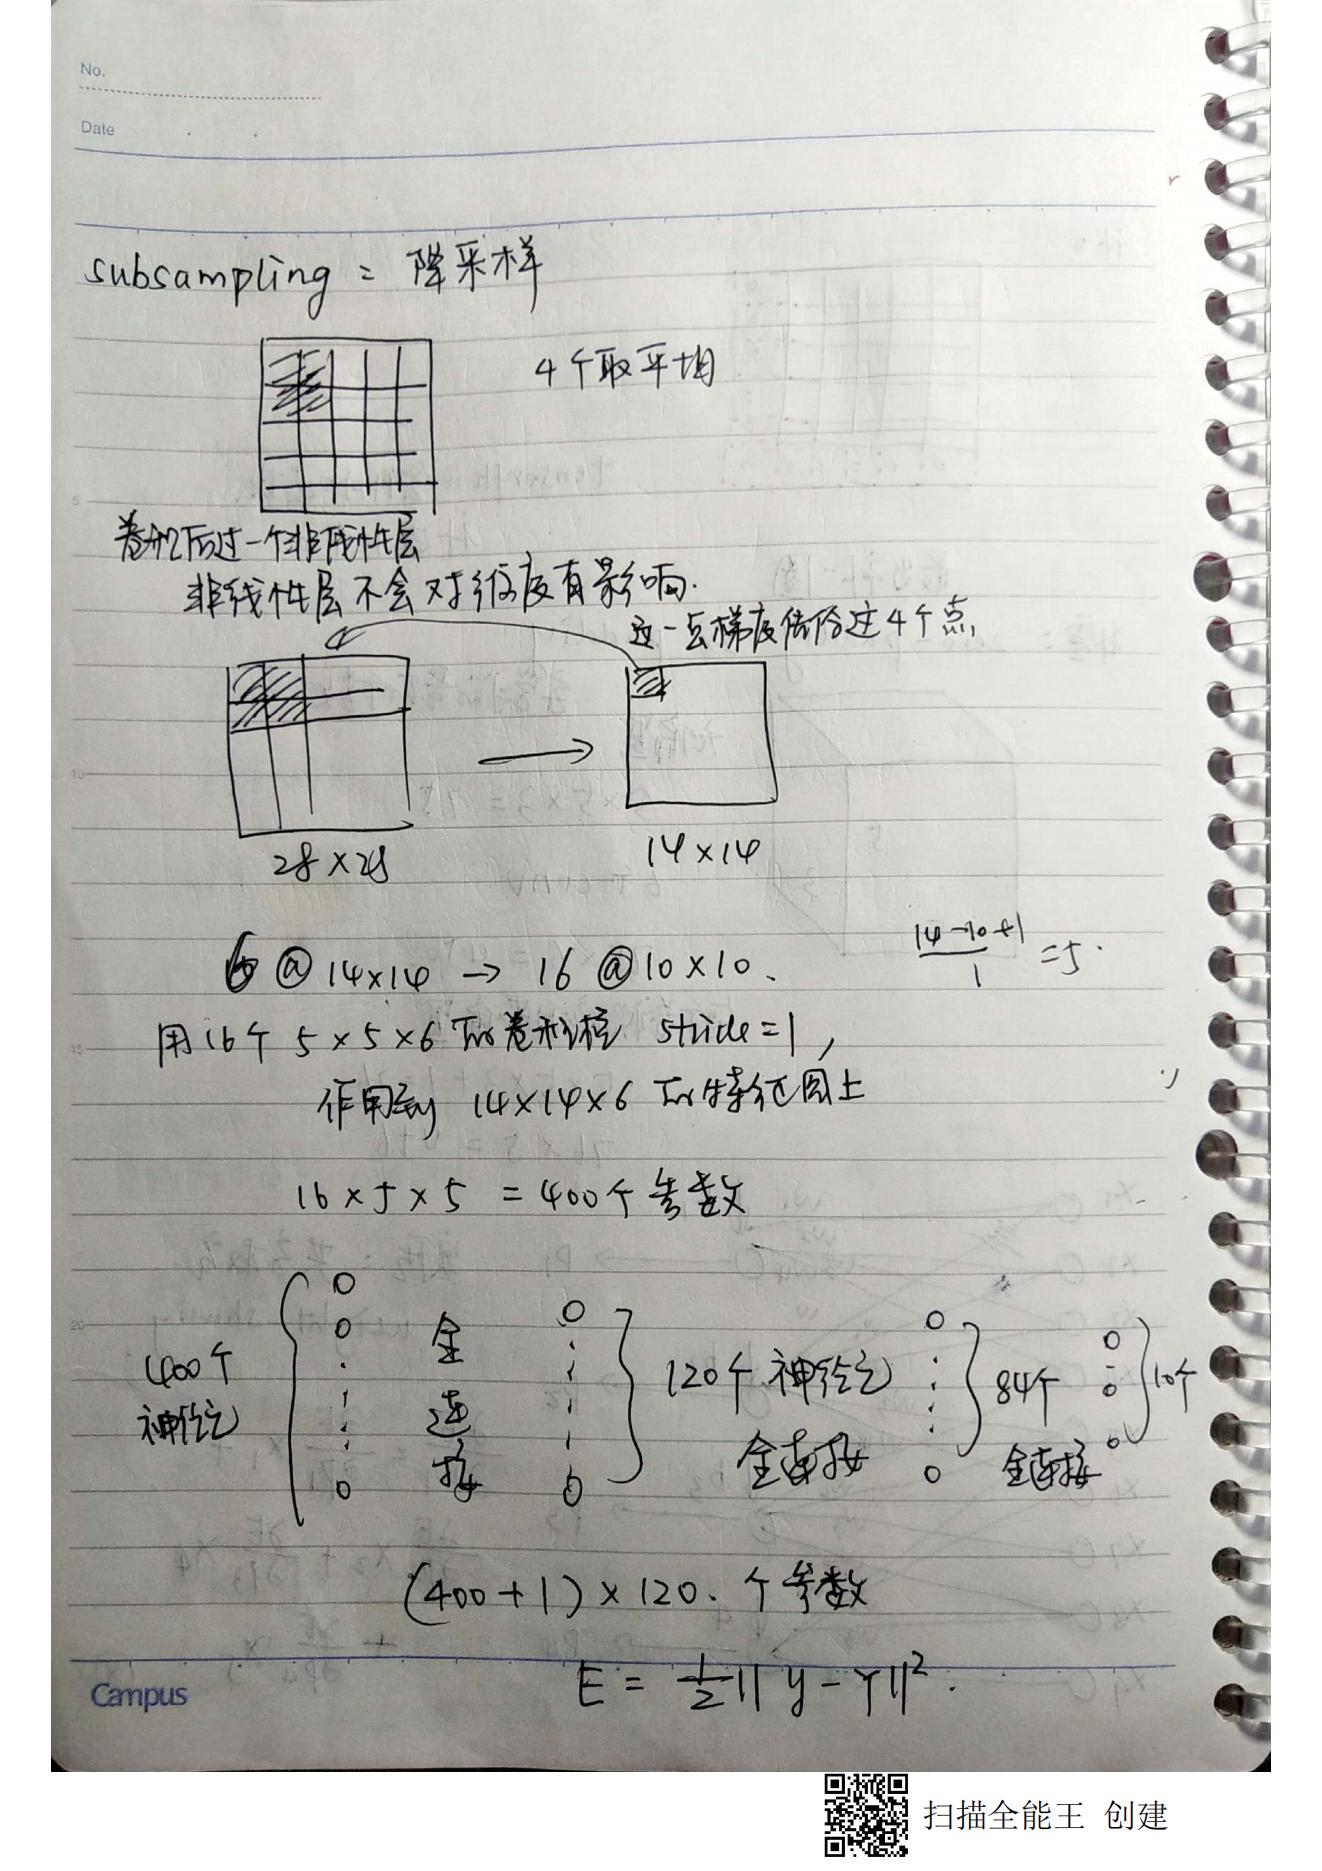 No.
Date
subsampling = 降采样
4个取平均
卷积后过一个非线性层
非线性层不会对维度有影响.
这一点梯度传给这4个点
28×28
14×14
6@14×14 → 16@10×10.
(14-10+1)/1 = 5.
用16个 5×5×6 的卷积核 stride=1,
作用到 14×14×6 的特征图上
16×5×5 = 400个参数
400个神经元
全连接
120个神经元
全连接
84个
全连接
10个
(400+1)×120. 个参数
E = 1/2||y-Y||².
Campus
扫描全能王 创建
5
10
15
20